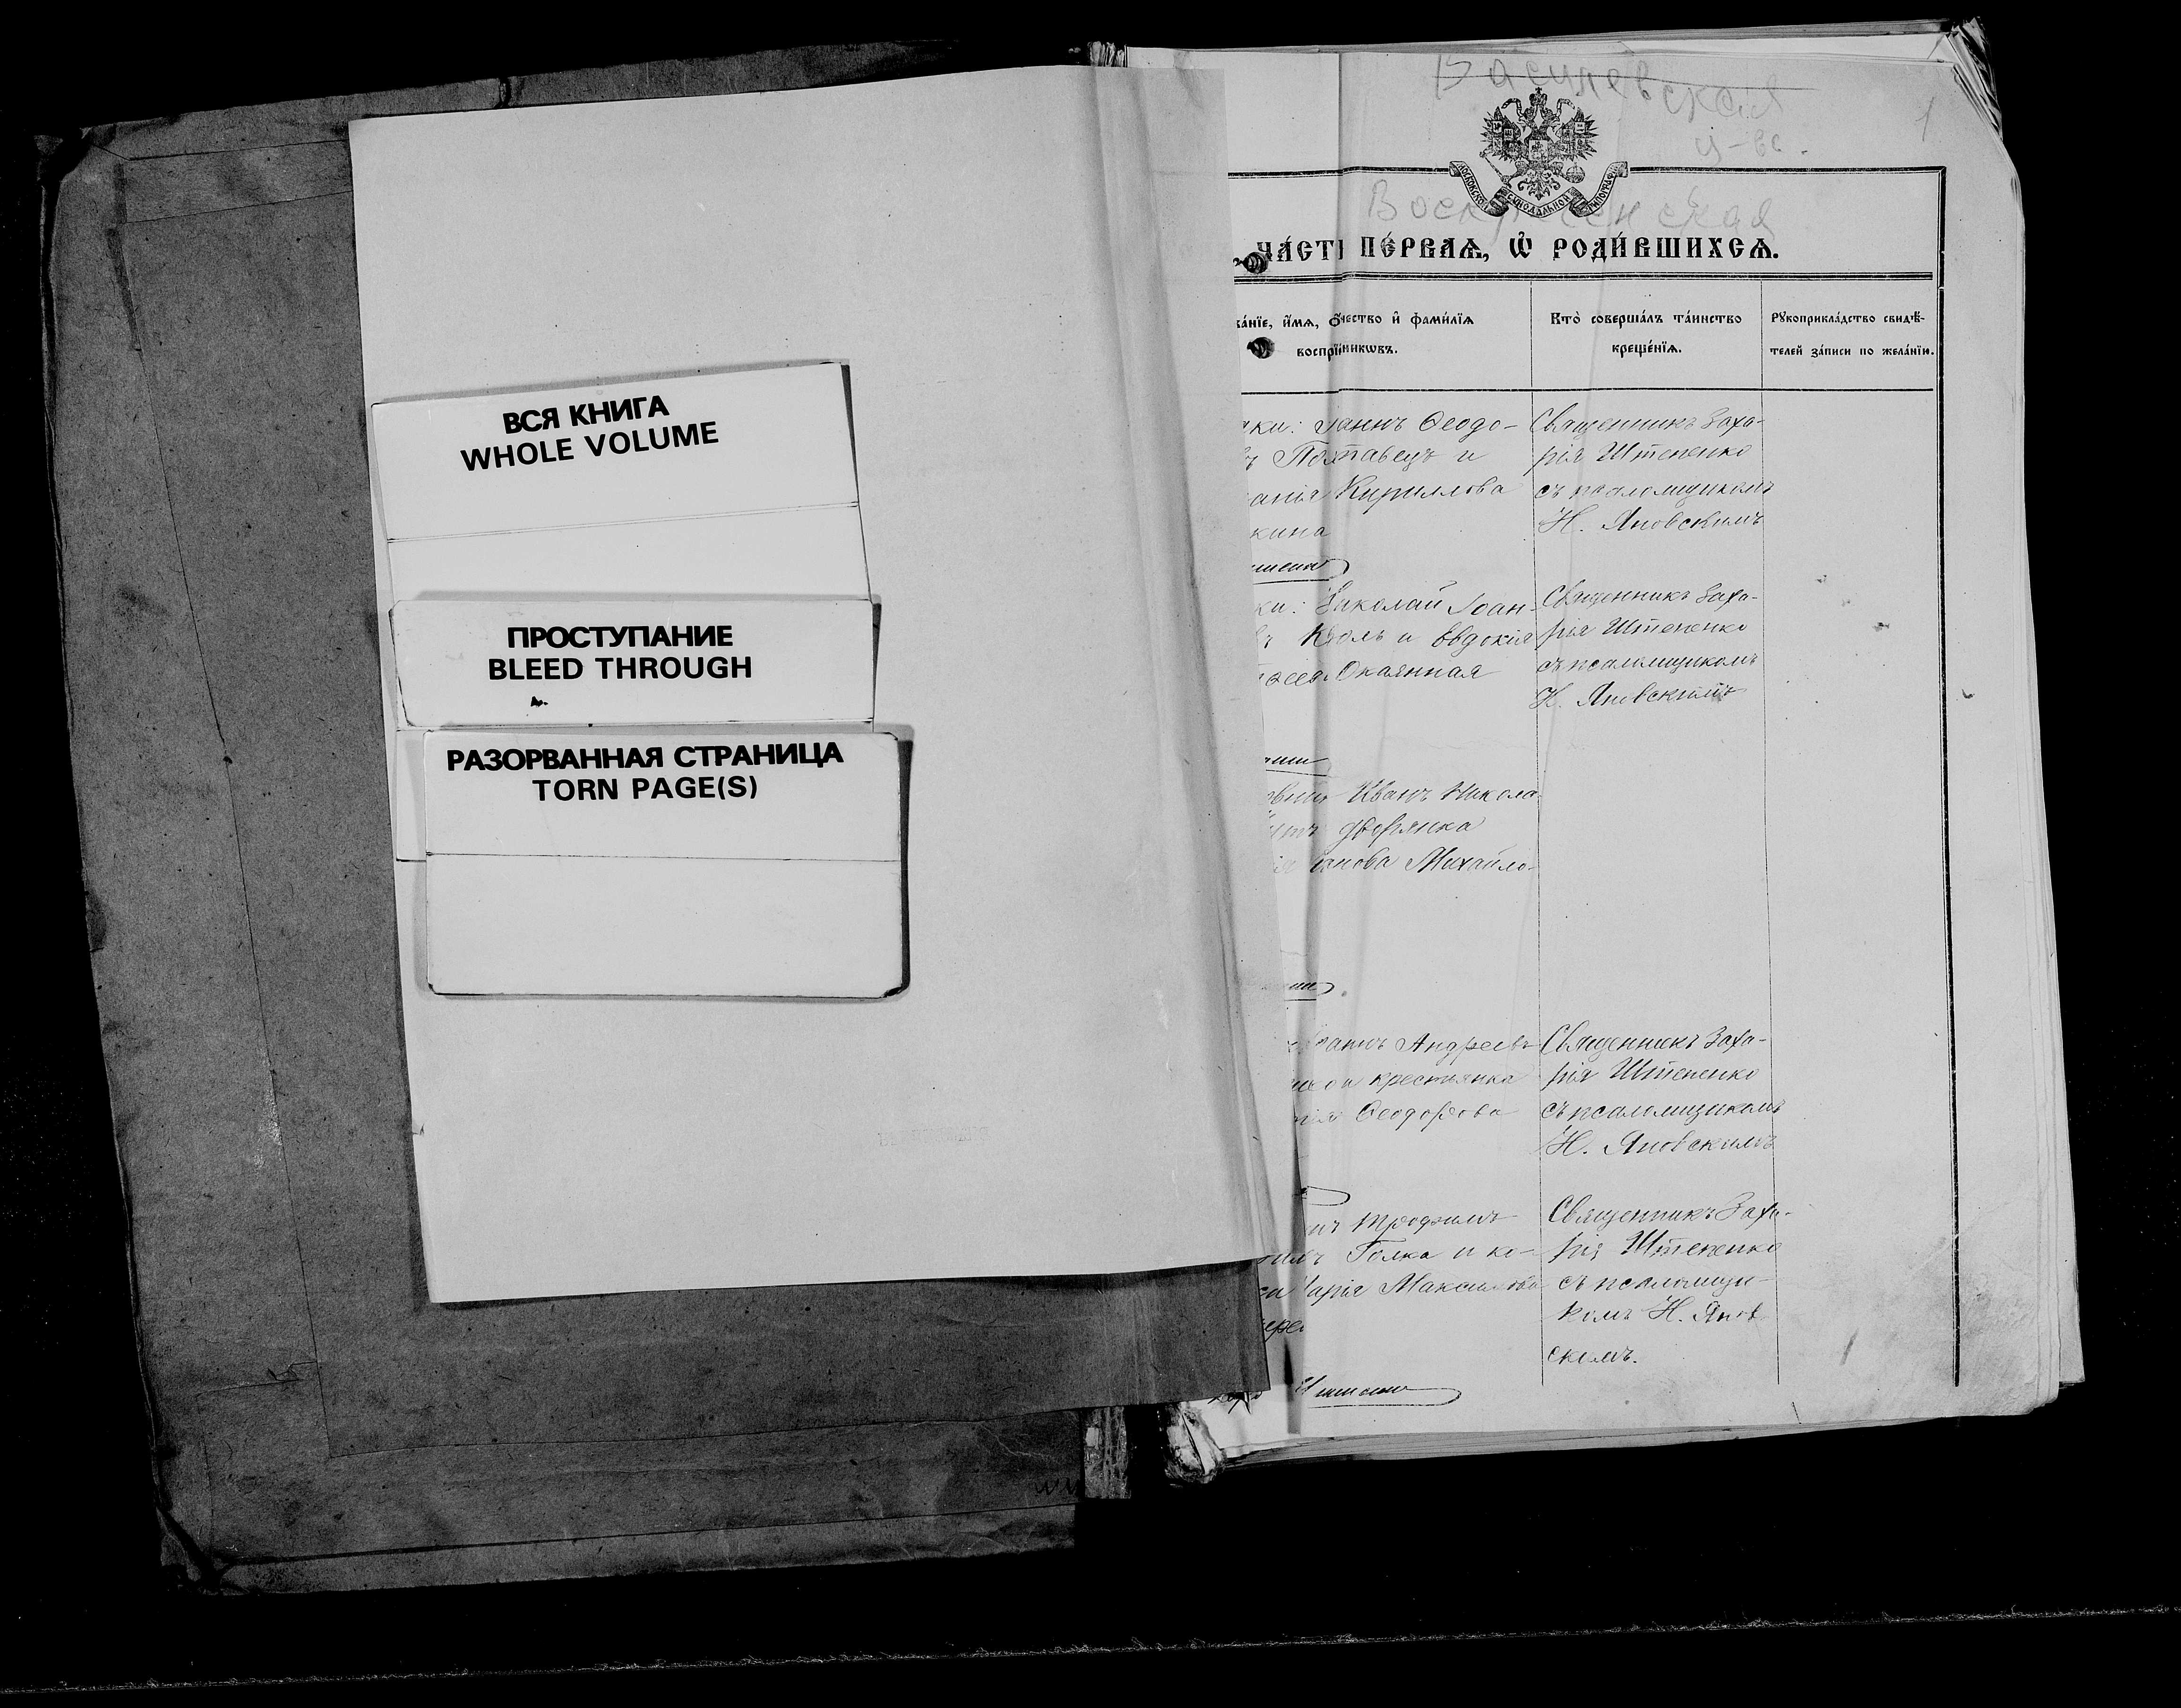 ВСЯ КНИГА
WHOLE VOLUME
ПРОСТУПАНИЕ
BLEED THROUGH
РАЗОРВАННАЯ СТРАНИЦА
TORN PAGE(S)
Василевская
ц-ва.
1
МОСКОВСКОЙ СѴНОДАЛЬНОЙ ТИПОГРАФІИ
Воскресенская
ЧА́СТЬ ПЕ́РВАѦ, Ѽ РОДИ́ВШИХСѦ.
ва́нїе, и҆́мѧ, ѻ҆́чество и҆ фами́лїѧ
воспрїи́никѡвъ.
Кто̀ соверша́лъ та́инство
креще́нїѧ.
Рꙋкоприкла́дство свидѣ́-
телей за́писи по жела́нїи.
Іоаннъ Ѳеодо-
Полтавецъ и
Кириллова
кина
Священникъ Заха-
рія Штепенко
съ псаломщикомъ
Н. Яновскимъ
Николай Іоан-
и Евдокія
Окаянная
Священникъ Заха-
рія Штепенко
съ псаломщикомъ
Н. Яновскимъ
Иванъ Никола-
дворянка
Михайло-
Андреевъ
крестьянка
Ѳеодорова
Священникъ Заха-
рія Штепенко
съ псаломщикомъ
Н. Яновскимъ
Трофимъ
Голка и ко-
Марія Максимова
Священникъ Заха-
рія Штепенко
съ псаломщи-
комъ Н. Янов
скимъ.